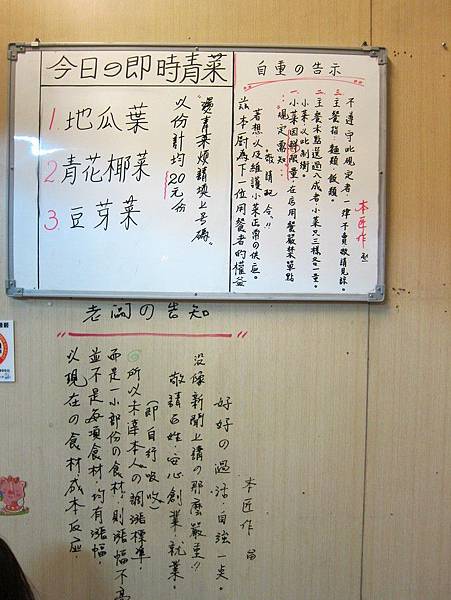 今日の即時青菜
1. 地瓜葉
2. 青花椰菜
3. 豆芽菜
"燙青菜煩請填上号碼。
以份計均20元份
自重の告示
茲本廚為下一位用餐者的權益
著想以及維護小菜正常の供应。
敬請配合!!
規定需知:
一 小菜因鮮限量 在店用餐嚴禁單點
小菜以此制衡。
二 主餐未點選過八成者 小菜只三樣各一
三 主餐指 麵類 飯類。
不遵守此規定者 一律予賣敬請見諒。
本匠作
老闆の告知
以現在の食材成本反应，
並不是每項食材，均有漲幅，
而是一小部份の食材，則漲幅不高
所以未達本人の調漲標準，
(即自行吸收)
敬請百姓，安心創業、就業。
沒像新聞上講の那麼嚴重!!
好好の過活，自強一点。
本匠作 留